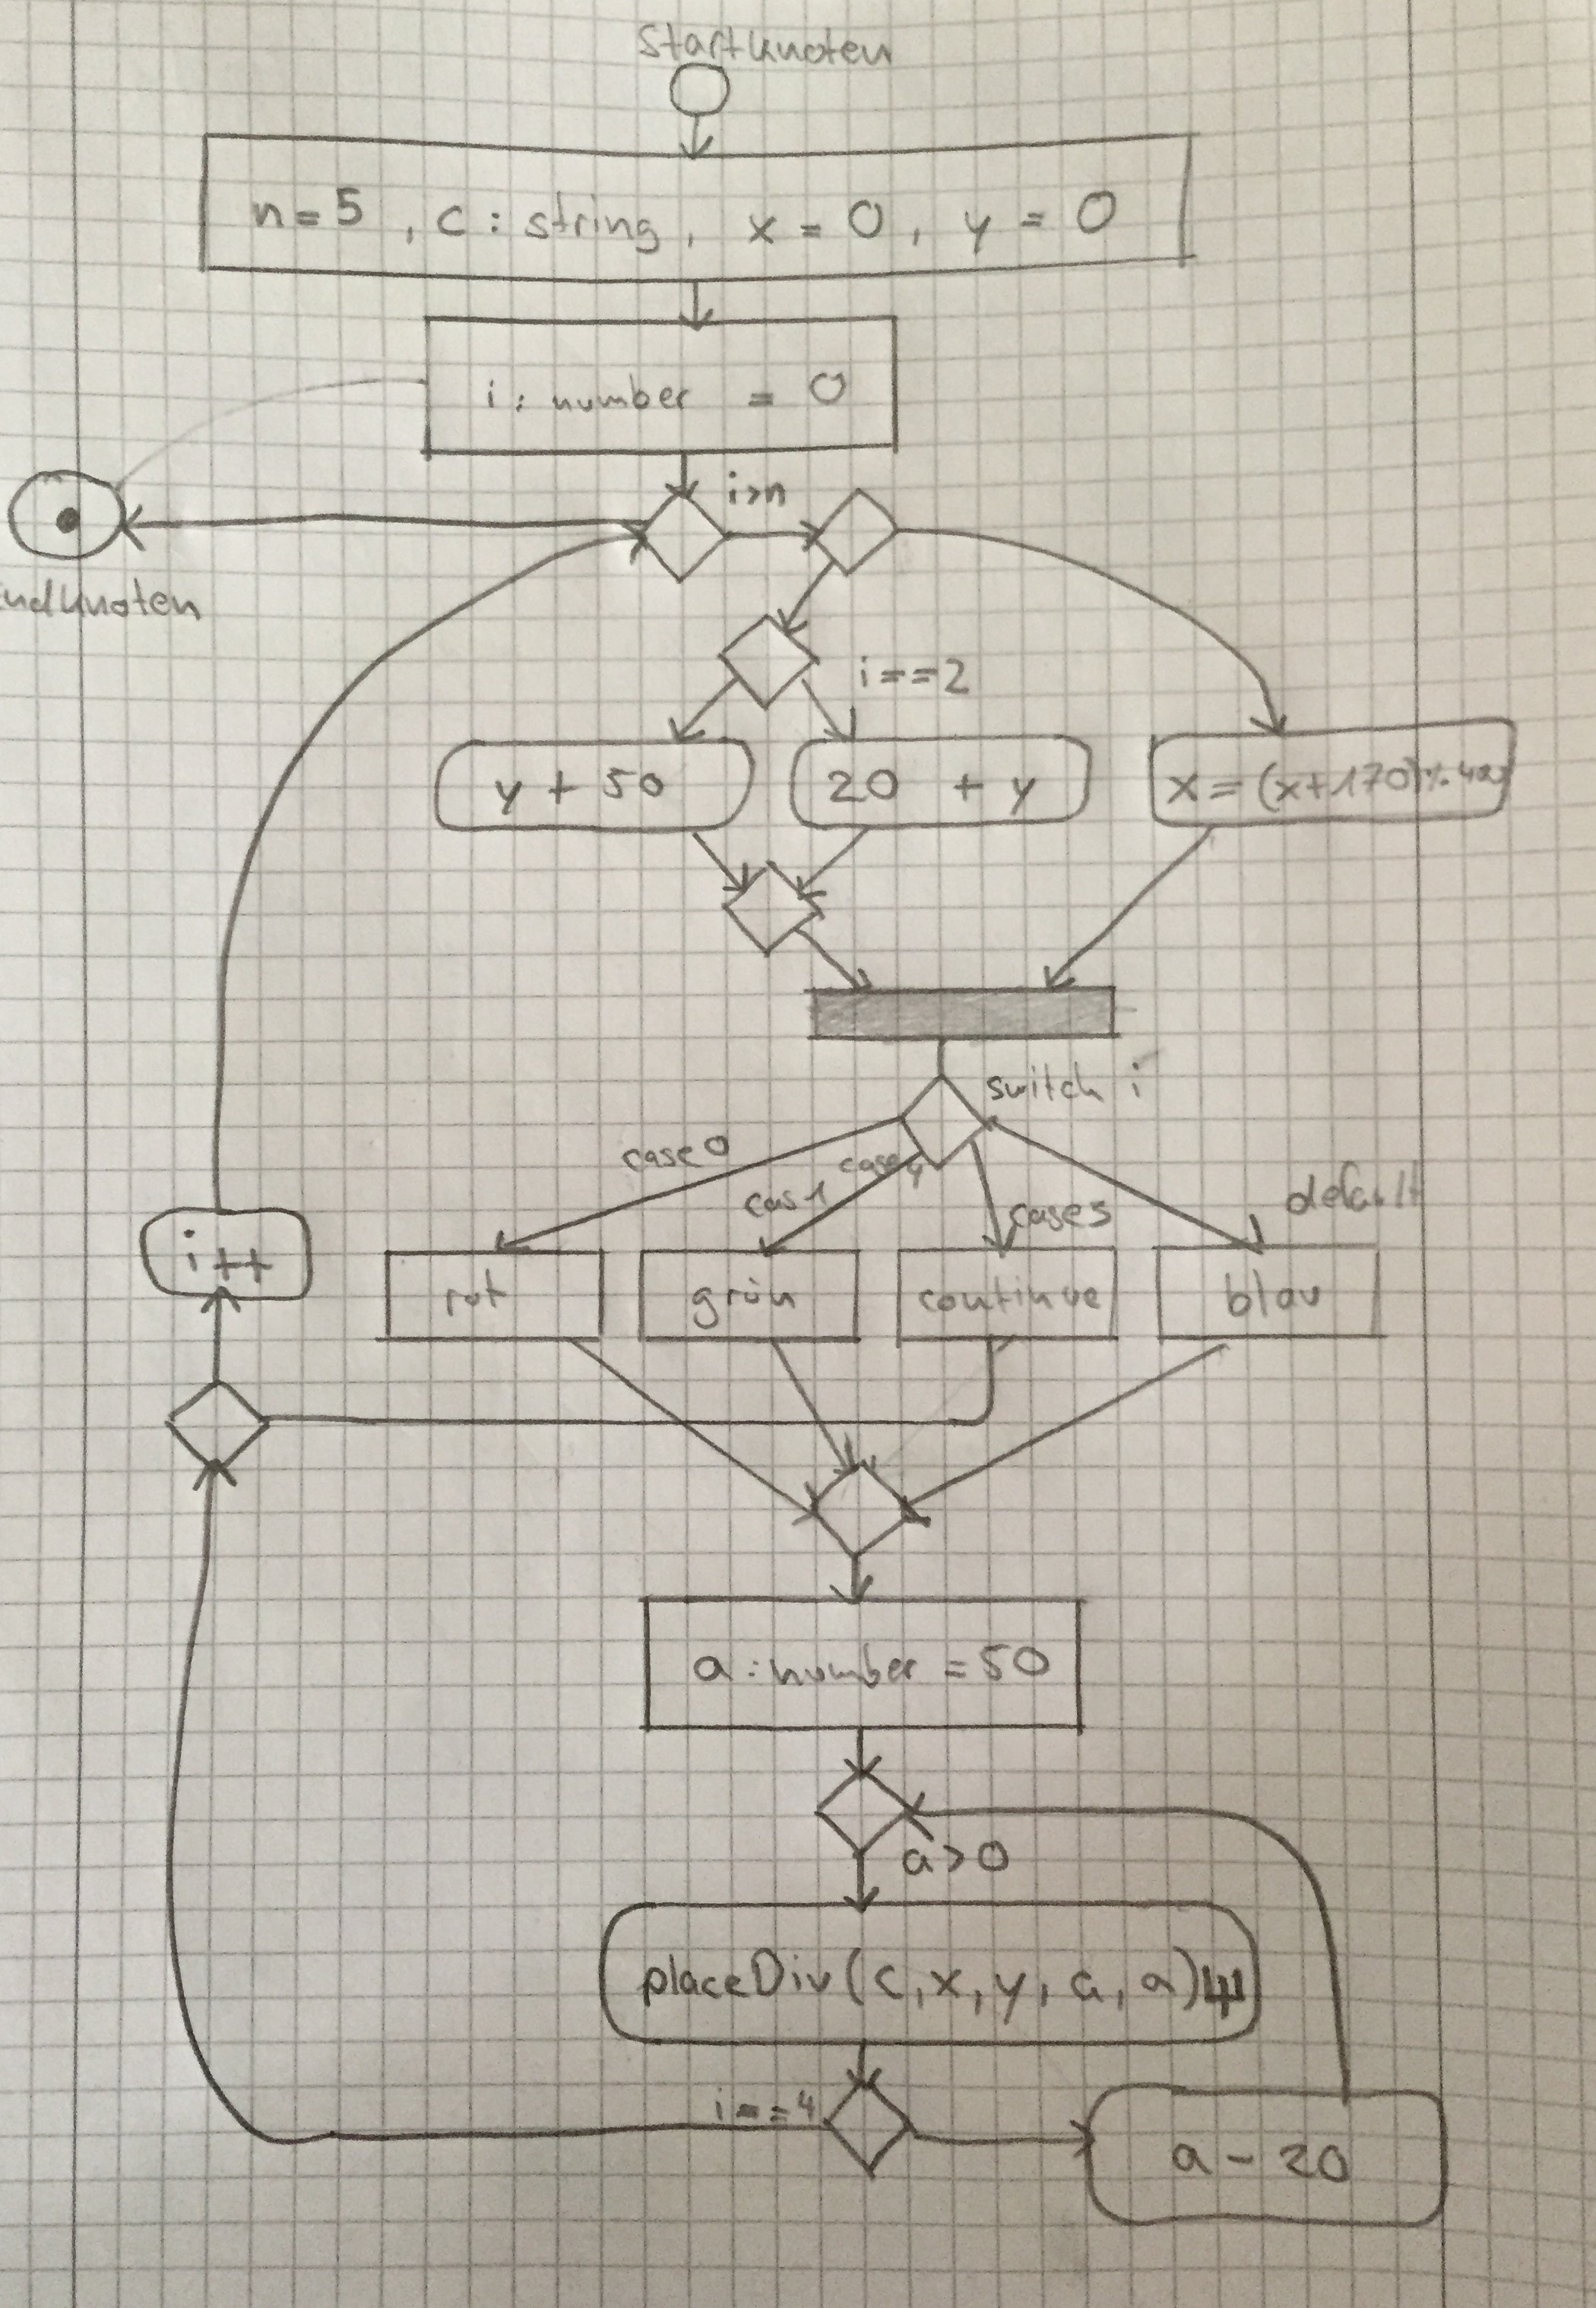 Startknoten
n=5 , c : string, x = 0, y = 0
i : number = 0
i>n
Endknoten
i==2
y + 50
20 + y
x=(x+170)%400
switch i
case 0
cas 1
case 4
case 5
default
i++
rot
grün
continue
blau
a : number = 50
a>0
placeDiv(c,x,y,a,a)
i==4
a - 20